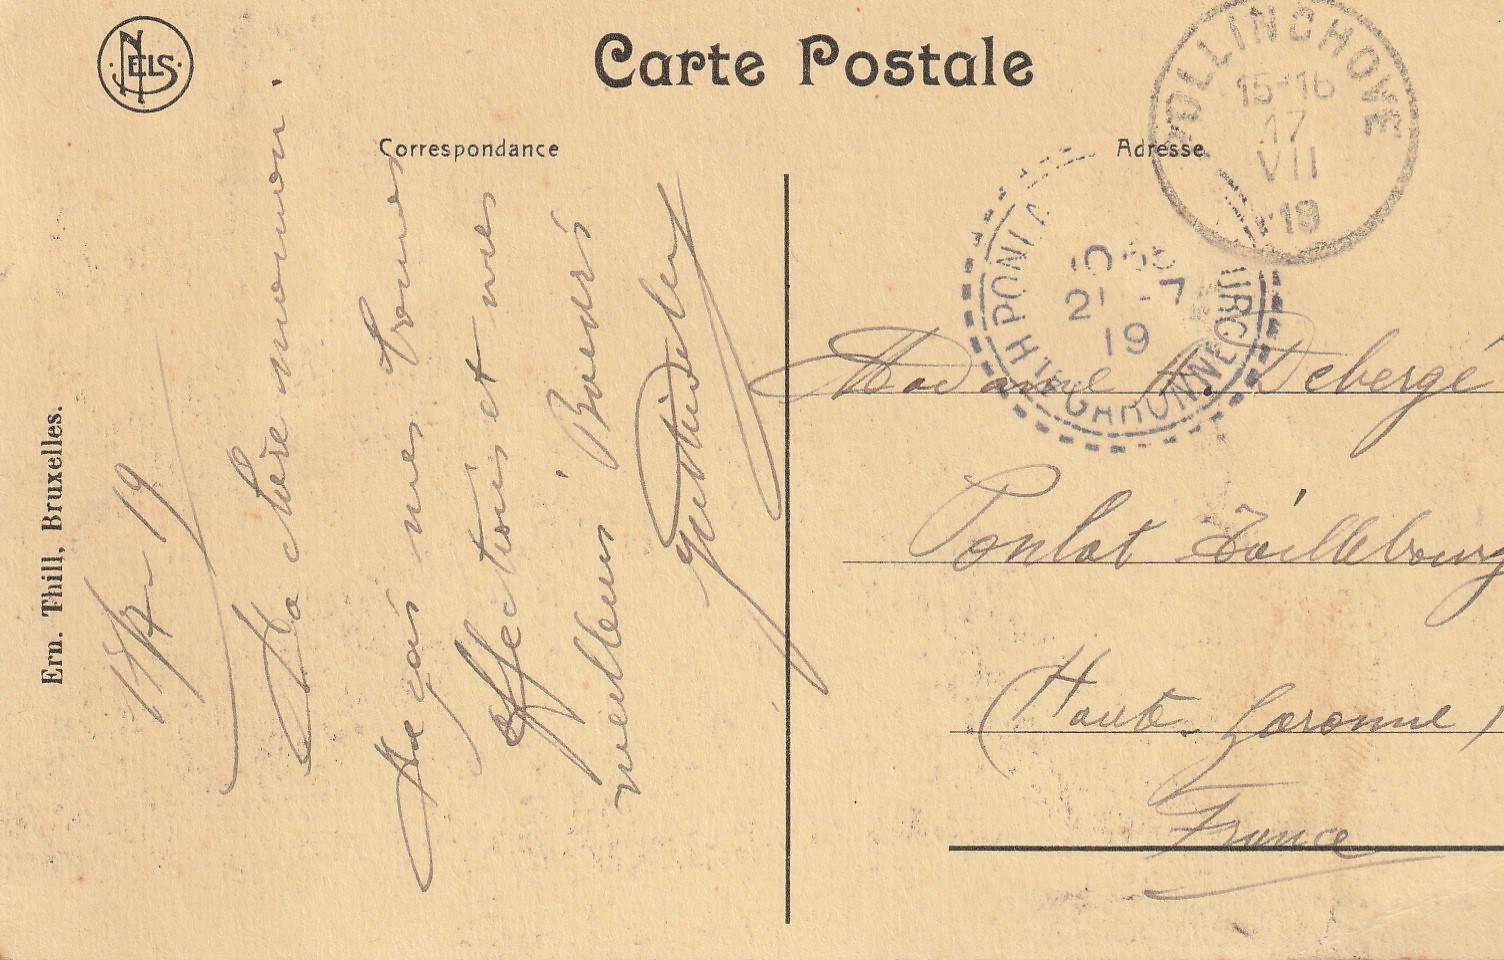 NELS
Carte Postale
Correspondance
Adresse
POLLINCHOVE
15-16
17
VII
19
21 -7
19
Hte GARONNE
Ern. Thill, Bruxelles.
17/7-19
Ma chère maman.
Reçois mes bonnes
affections et mes
meilleurs Baisers
Madame A. Debergé
Ponlat Taillebourg
Haute-Garonne
France